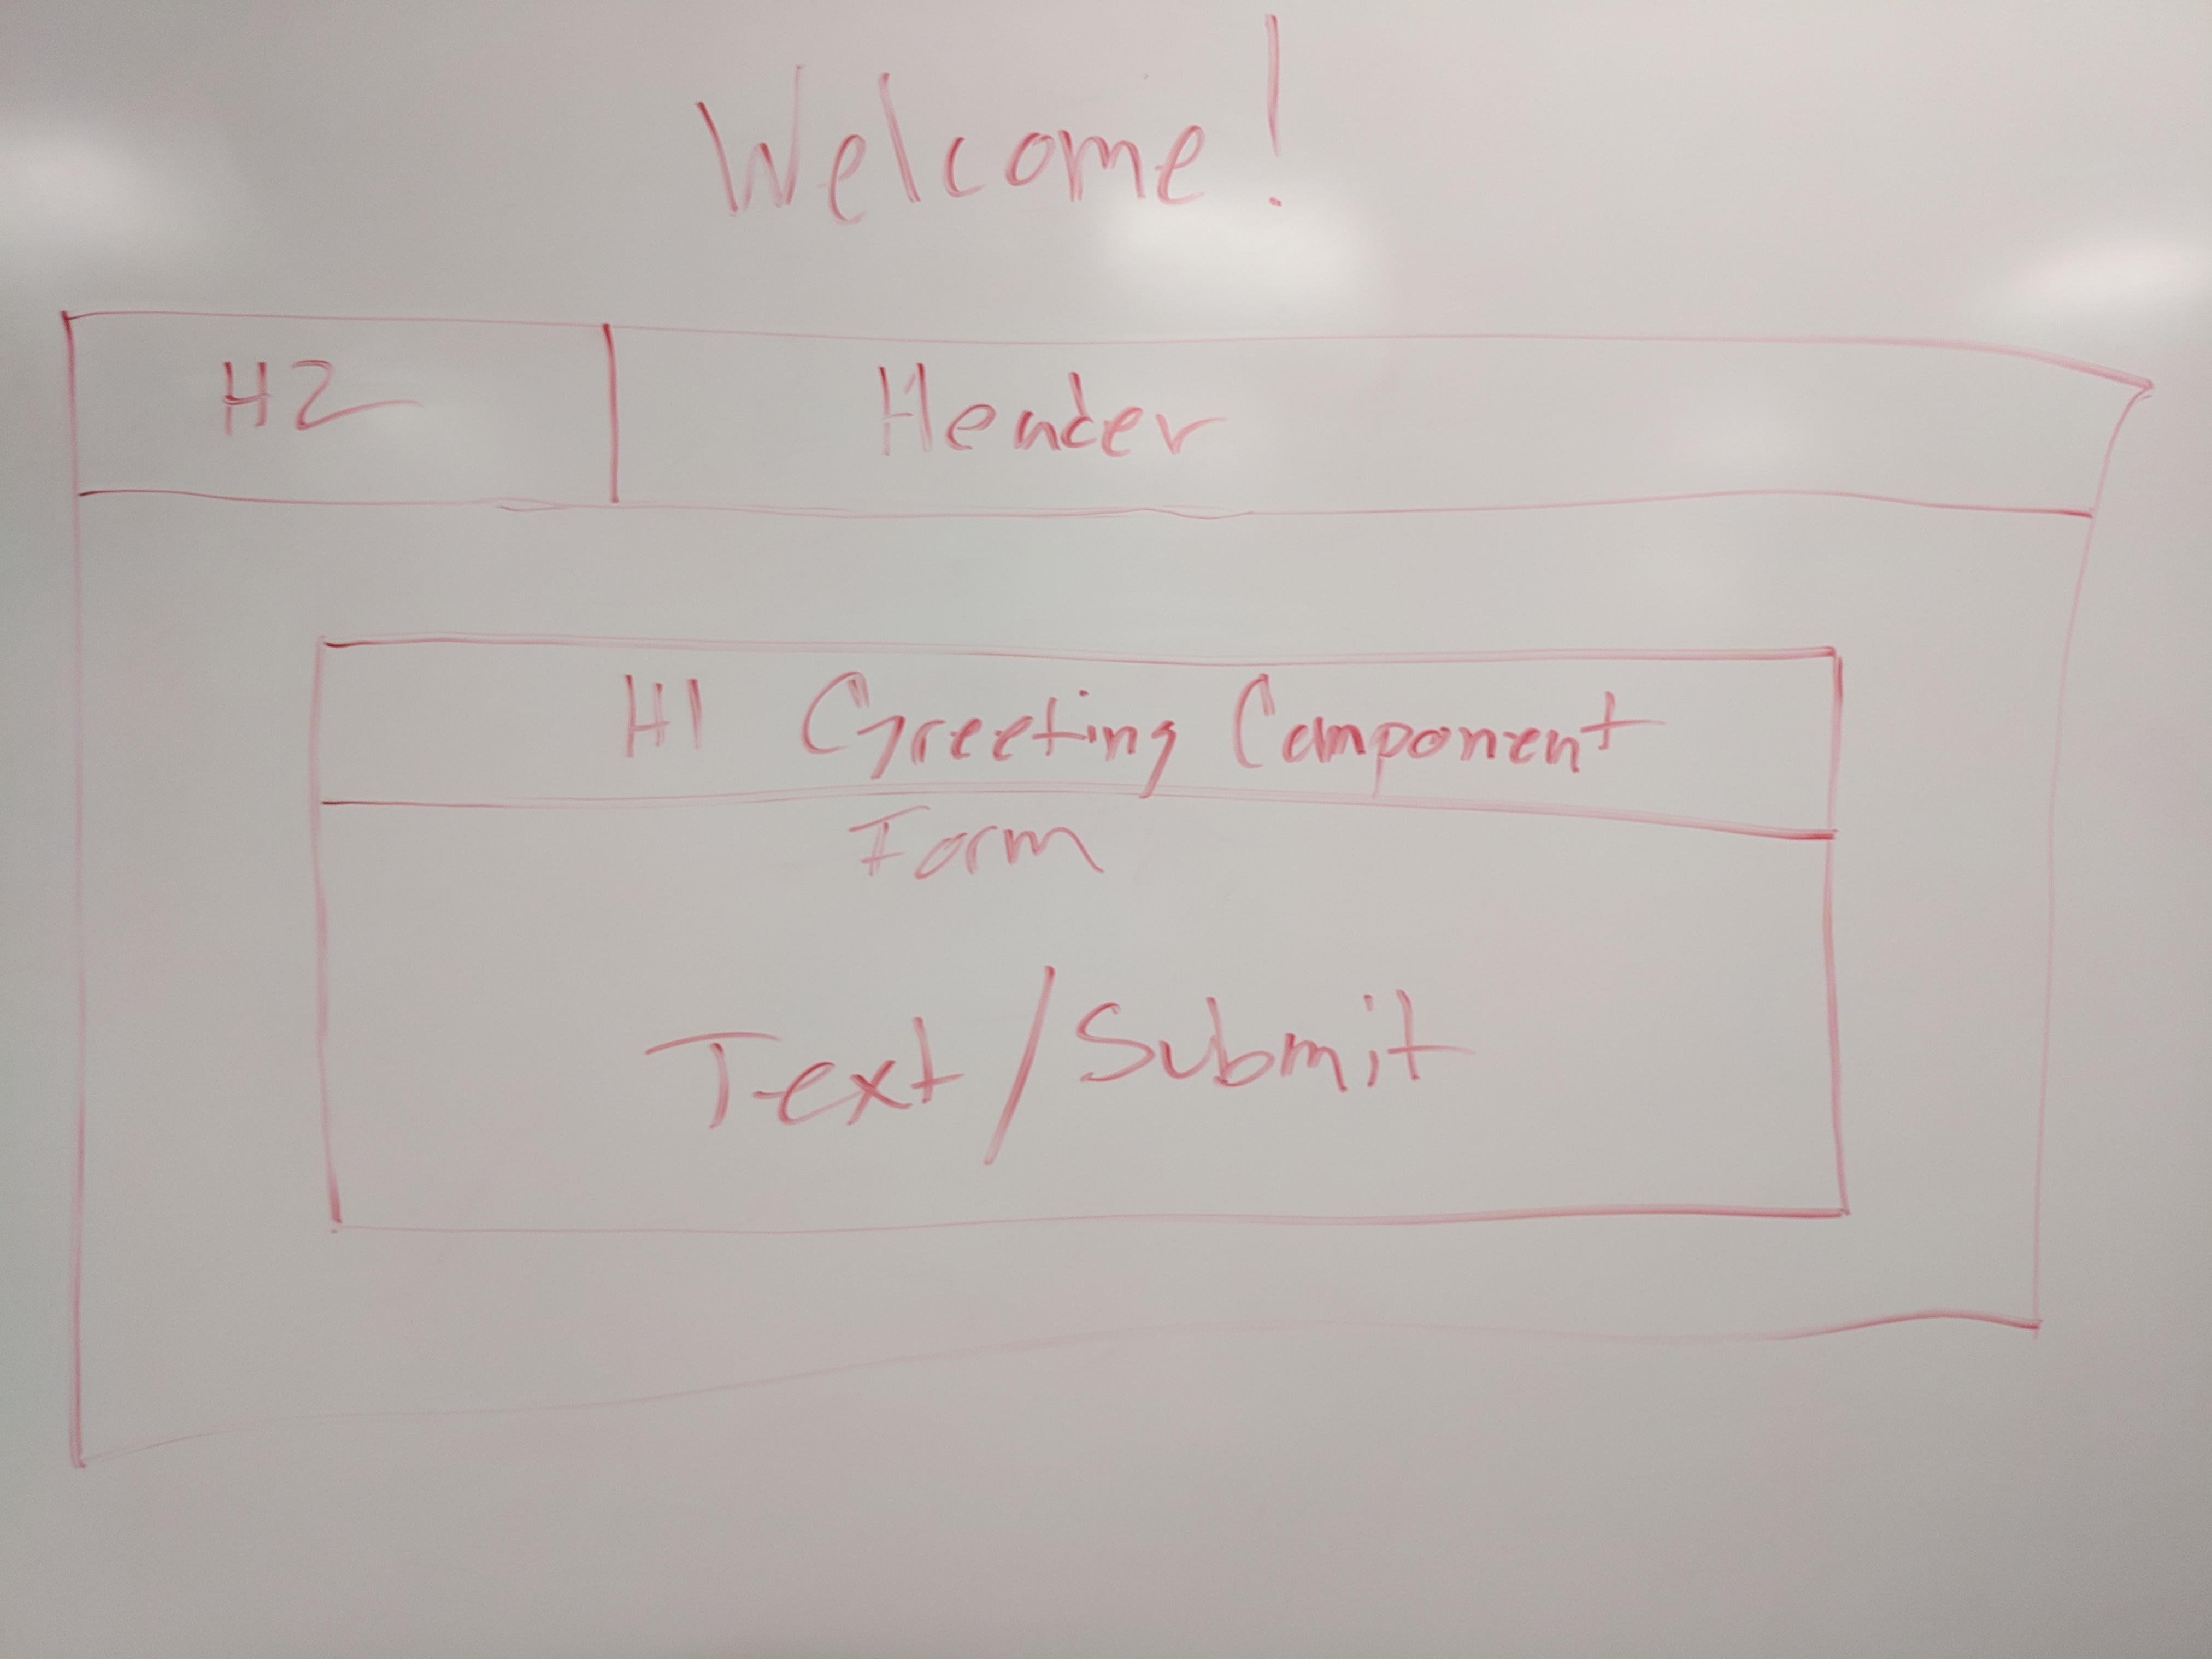 Welcome!
H2 Header
H1 Greeting Component
Form
Text/Submit